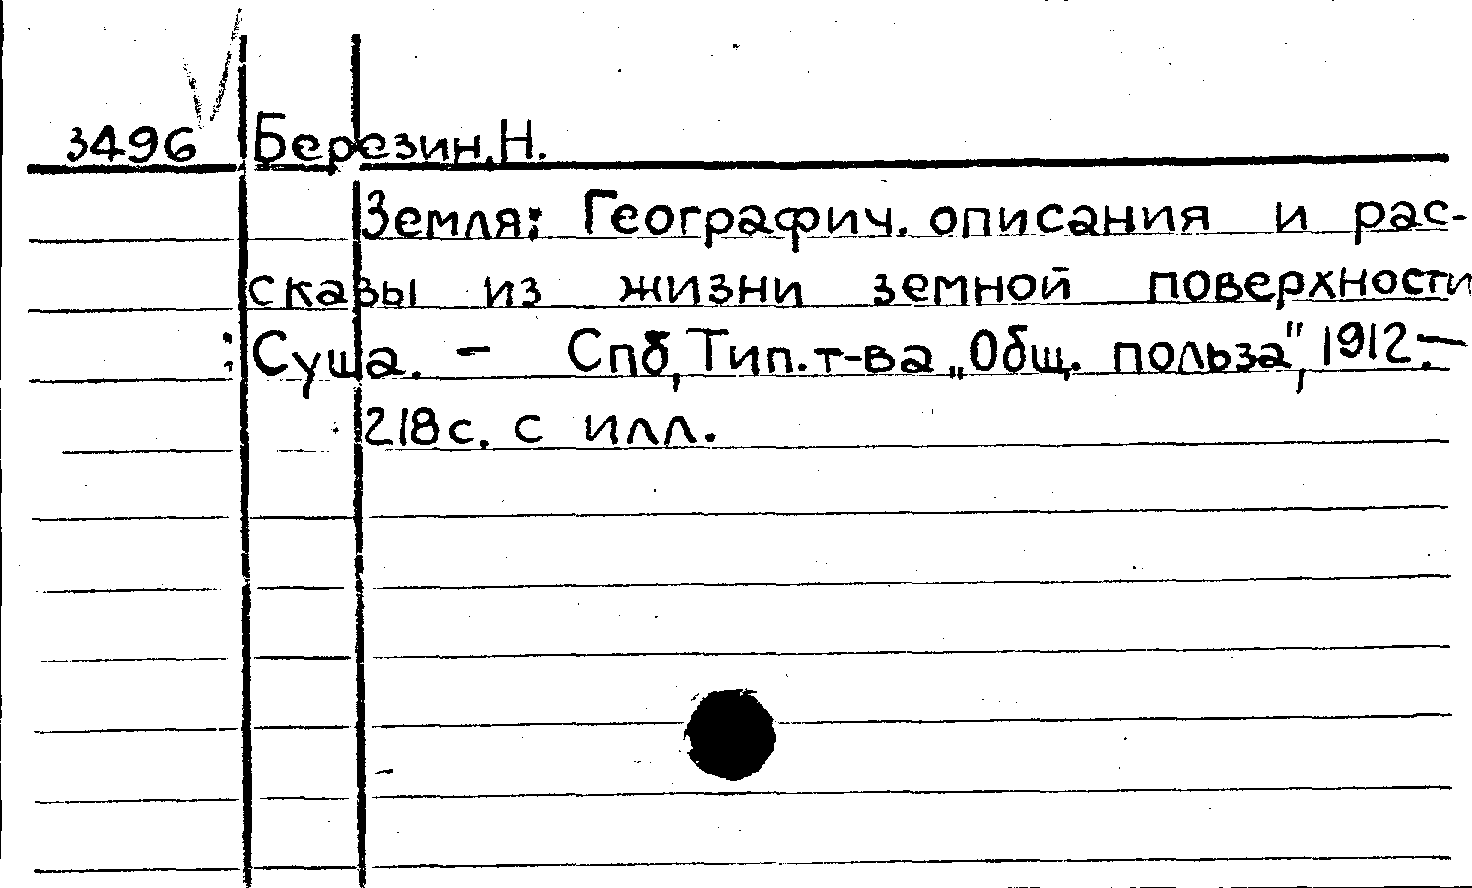 3496 Березин, Н.
Земля: Географич. описания и рас-
сказы из жизни земной поверхности
: Суша. – Спб, Тип. т-ва „Общ. польза", 1912.–
218с. с илл.